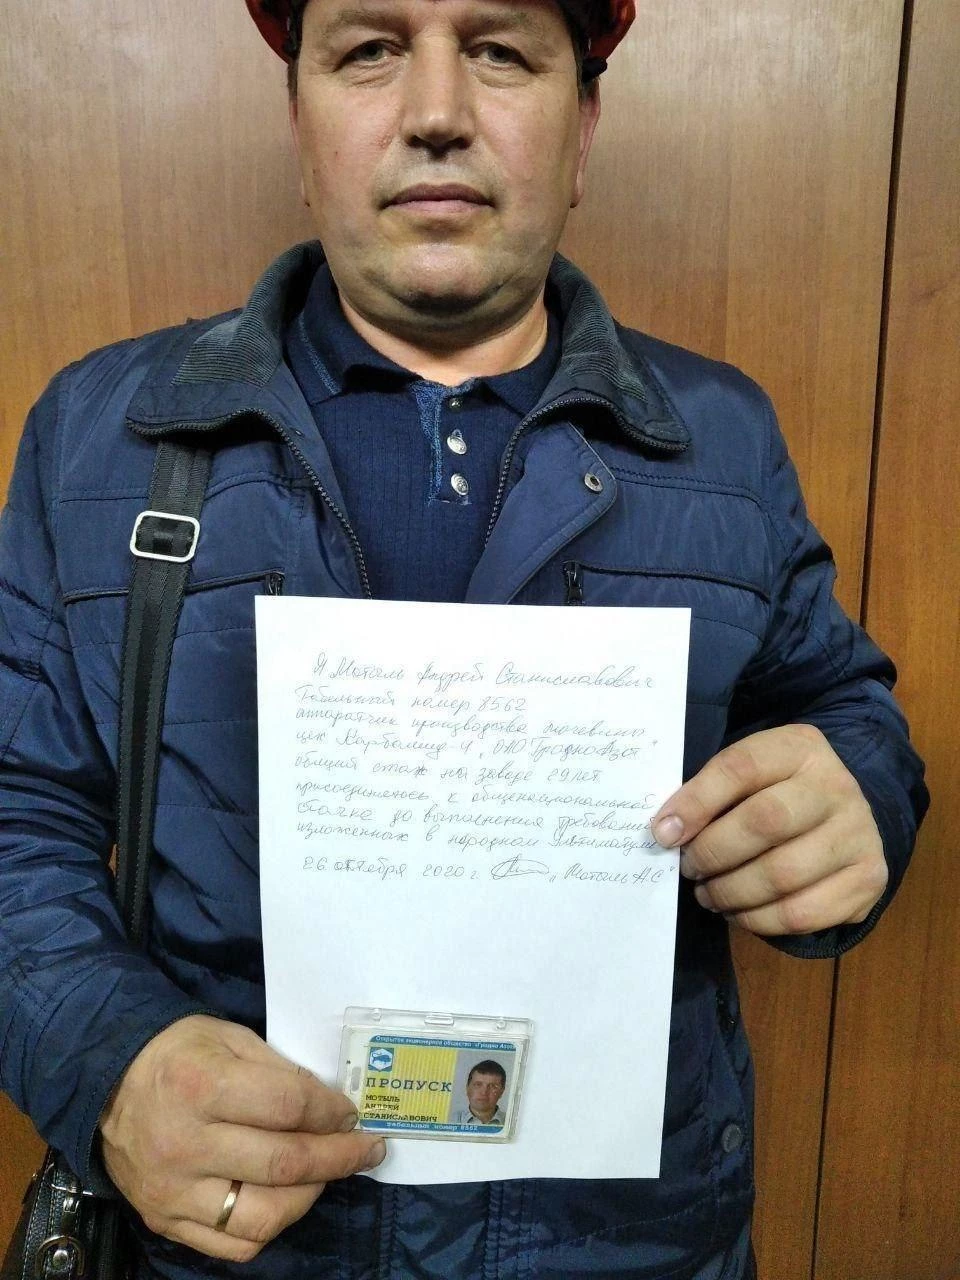 Я Мотыль Андрей Станиславович
Табельный номер 8562
аппаратчик производства мочевины
цех Карбамид-4 „ОАО "Гродно Азот"
общий стаж на заводе 29 лет
присоединяюсь к общенациональной
стачке до выполнения требований
изложенных в народном Ультиматуме
26 октября 2020 г. „Мотыль А.С"
Открытое акционерное общество «Гродно Азот»
ПРОПУСК
МОТЫЛЬ
АНДРЕЙ
СТАНИСЛАВОВИЧ
табельный номер 8562